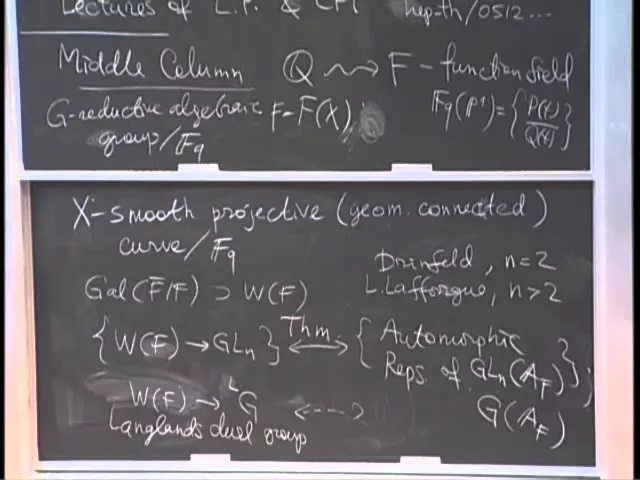 Lectures of L.P. & CFT hep-th/0512...
Middle Column Q ⇝ F - function field
G-reductive algebraic F = F(X), F_q(P¹) = {P(t)/Q(t)}
group/F_q
X - smooth projective (geom. connected)
curve/F_q
Drinfeld, n=2
Gal(F̄/F) ⊃ W(F) L. Lafforgue, n>2
{W(F) → GL_n} ⟷ Thm. {Automorphic
Reps of GL_n(A_F)};
W(F) → ᴸG ⇠⇢ G(A_F)
Langlands dual group